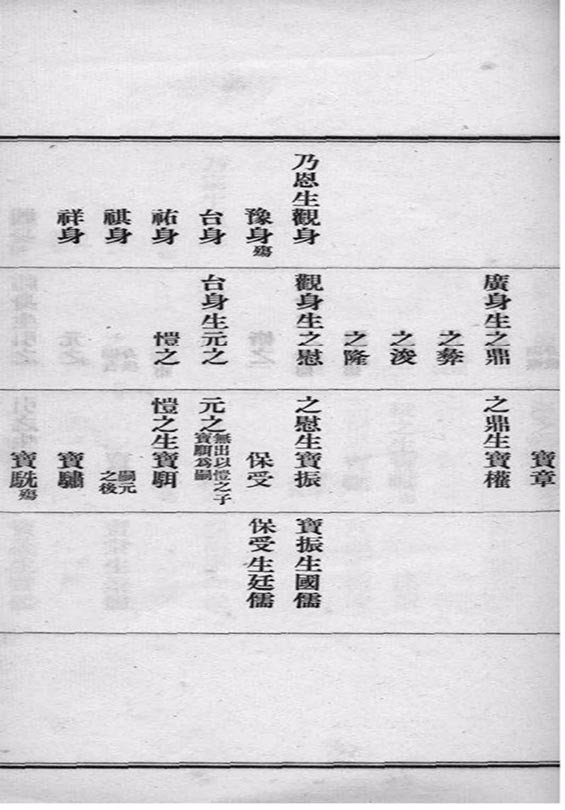 乃恩生觀身
豫身殤
台身
祐身
祺身
祥身
廣身生之鼎
之彝
之浚
之隆
觀身生之慰
台身生元之
愷之
寶章
之鼎生寶權
之慰生寶振
保受
元之無出以愷之子寶駬爲嗣
愷之生寶駬
嗣元之後
寶驌
寶駪殤
寶振生國儒
保受生廷儒